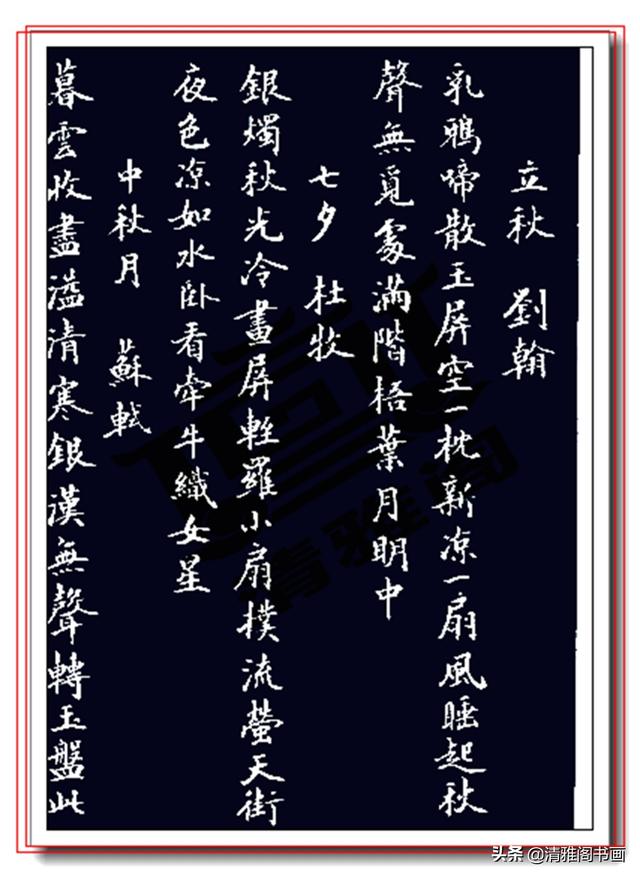 立秋 劉翰
乳鴉啼散玉屏空一枕新凉一扇風睡起秋
聲無覓處滿階梧葉月明中
七夕 杜牧
銀燭秋光冷畫屏輕羅小扇撲流螢天街
夜色凉如水卧看牽牛織女星
中秋月 蘇軾
暮雲收盡溢清寒銀漢無聲轉玉盤此
清雅阁
头条@清雅阁书画